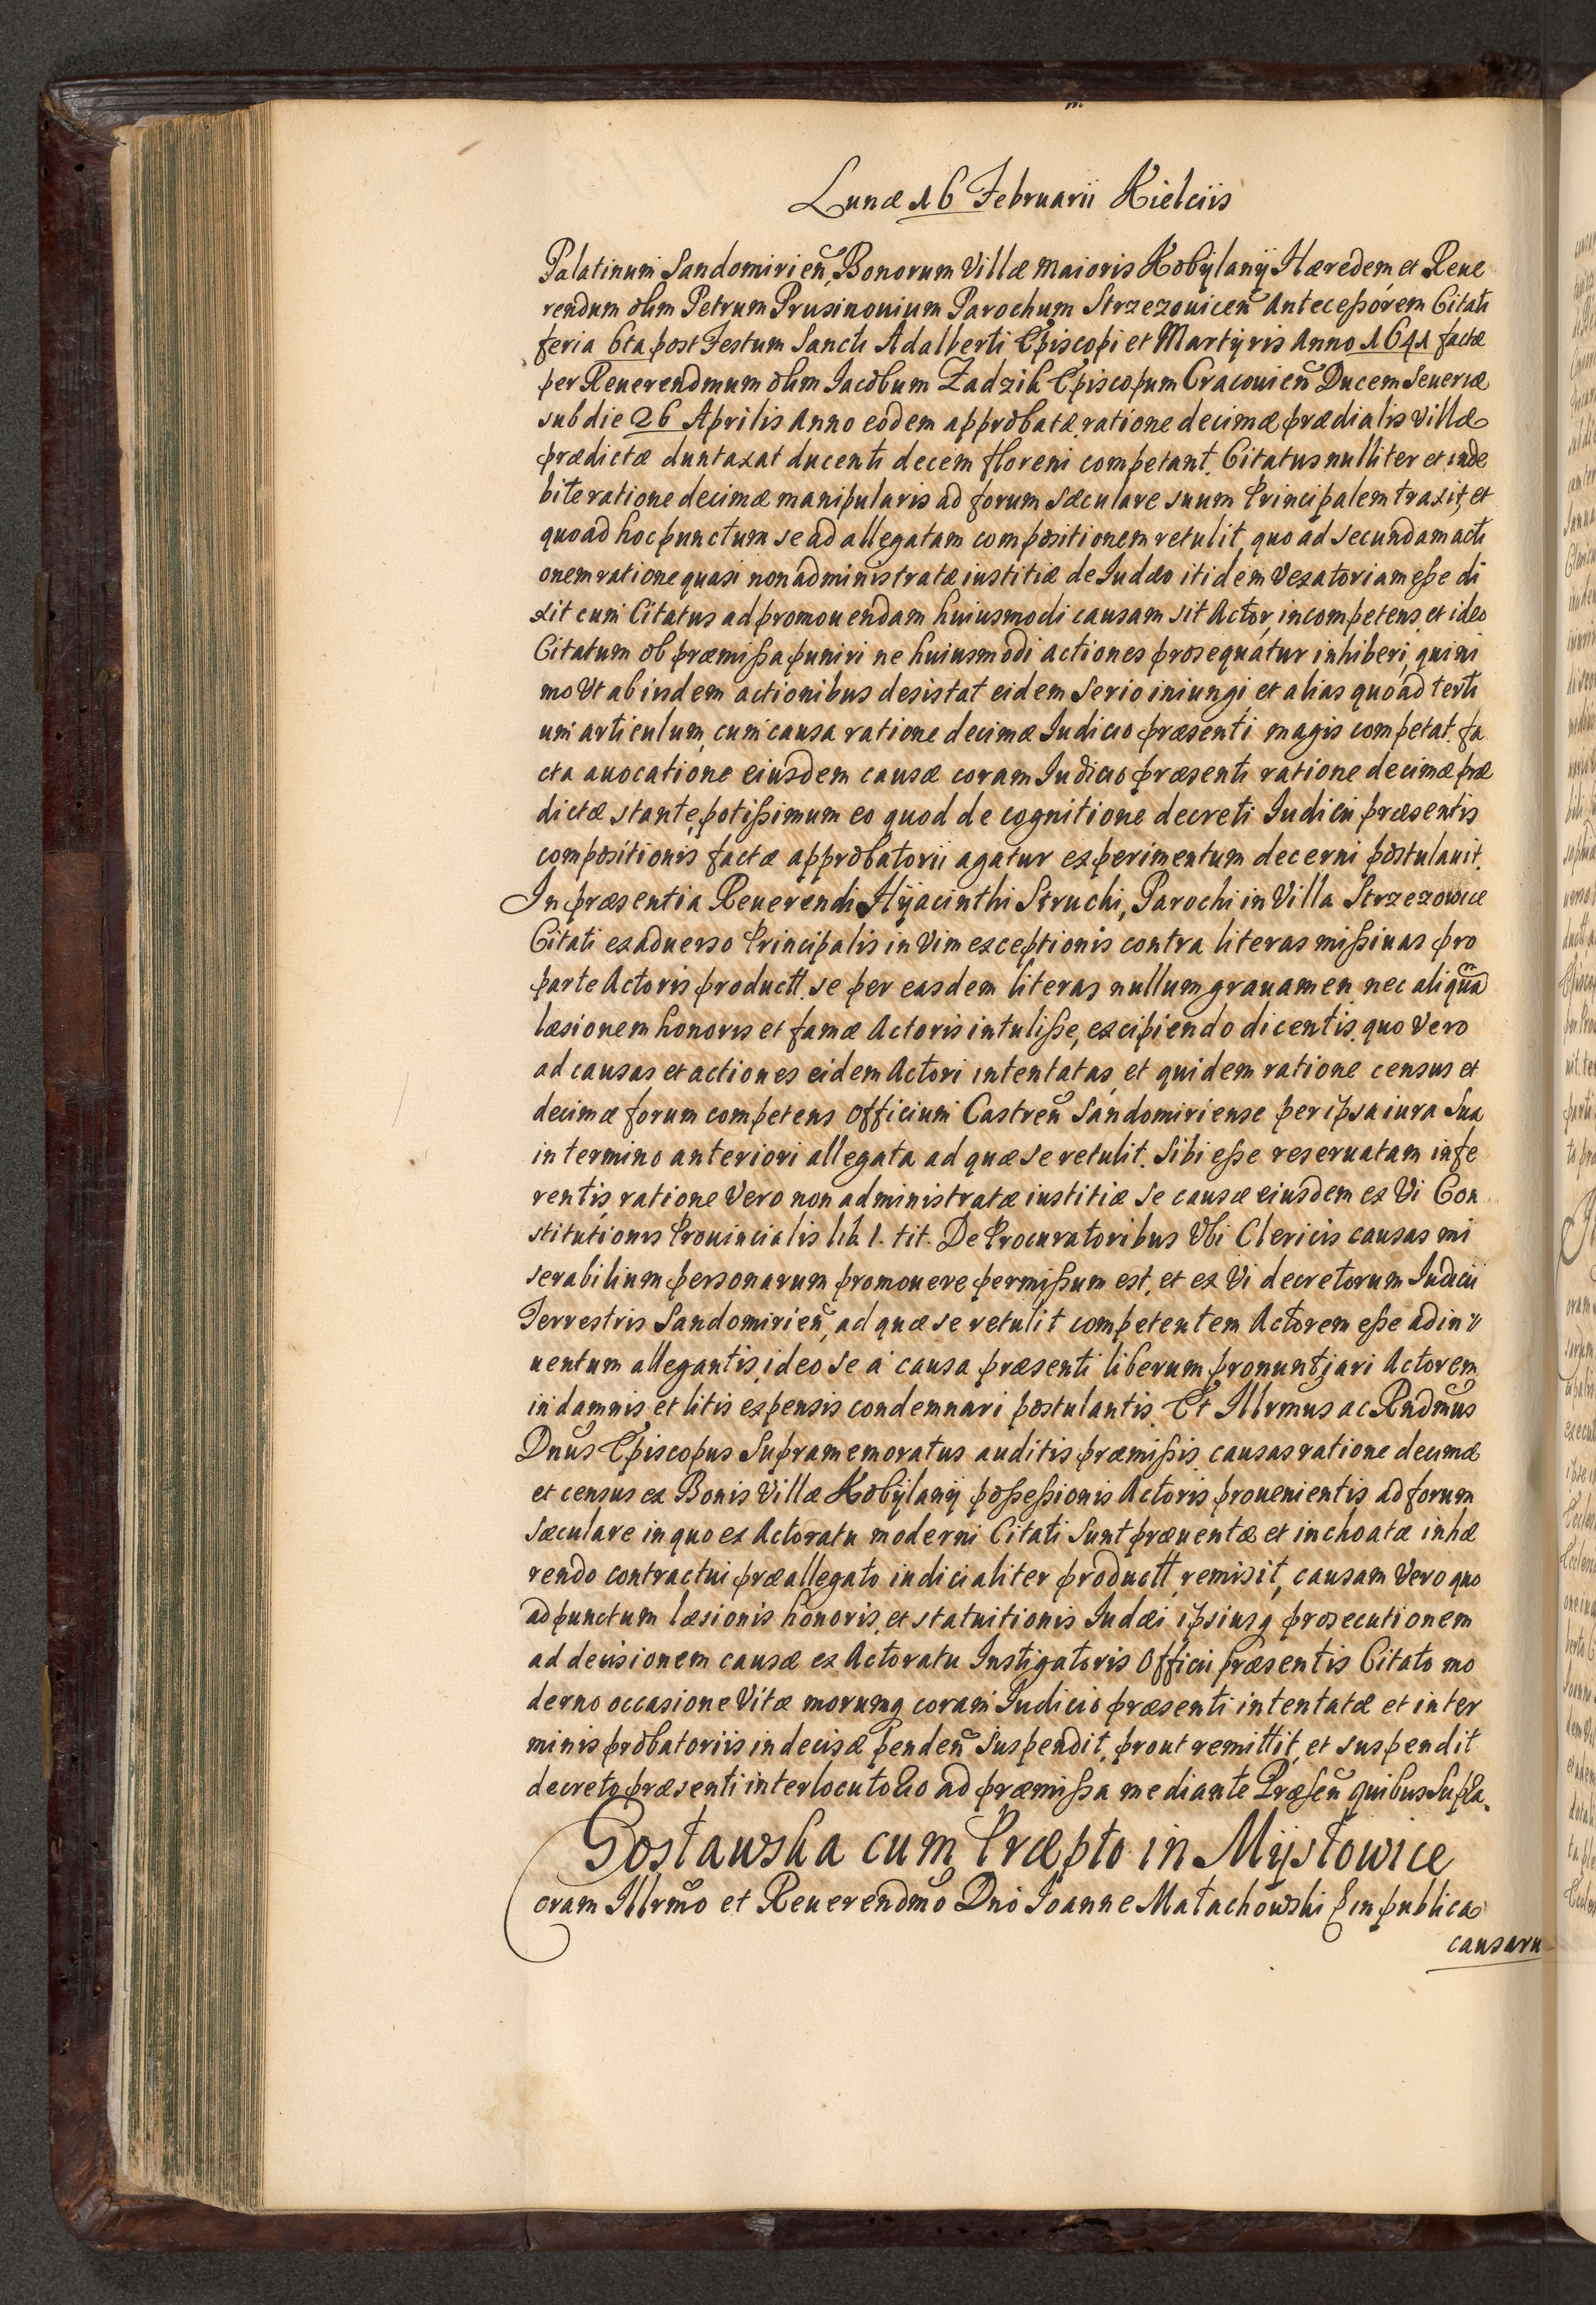 Lunæ 16 Februarii Kielciis
Palatinum Sandomirien̄, Bonorum Villæ Maioris Kobÿlanÿ Hæredem et Reue
rendum olim Petrum Prusinouium Parochum Strzezouicen̄ Antecessorem Citati
feria 6ta post Festum Sancti Adalberti Episcopi et Martÿris Anno 1641 factæ
per Reuerendmum olim Iacobum Zadzik Episcopum Cracouien̄ Ducem Seueriæ
sub die 26 Aprilis Anno eodem approbatæ, ratione decimæ prædialis villæ
prædictæ duntaxat ducenti decem floreni competant. Citatus nulliter et inde
bite ratione decimæ manipularis ad forum sæculare suum Principalem traxit, et
quoad hoc punctum se ad allegatam compositionem retulit, quo ad secundam acti
onem ratione quasi non administratæ iustitiæ de Iudæo itidem Vexatoriam esse di
xit cum Citatus ad promouendam huiusmodi causam sit Actor, incompetens, et ideo
Citatum ob præmissa puniri ne huiusmodi actiones prosequatur inhiberi, quini
mo Vt ab iisdem actionibus desistat eidem Serio iniungi, et alias quoad terti
um articulum, cum causa ratione decimæ Iudicio præsenti magis competat. fa
cta auocatione eiusdem causæ coram Iudicio præsenti ratione decimæ præ
dictæ stante, potissimum eo quod de cognitione decreti Iudicii præsentis
compositionis factæ approbatorii agatur experimentum decerni postulauit.
In præsentia Reuerendi Hÿacinthi Struchi, Parochi in Villa Strzezowice
Citati ex aduerso Principalis in Vim exceptionis contra literas missiuas pro
parte Actoris productt. se per easdem literas nullum grauamen nec aliquam
læsionem honoris et famæ Actoris intulisse, excipiendo dicentis. quo Vero
ad causas et actiones eidem Actori intentatas, et quidem ratione census et
decimæ forum competens Officium Castren̄ Sandomiriense per ipsa iura Sua
in termino anteriori allegata ad quæ se retulit. Sibi esse reseruatam infe
rentis, ratione Vero non administratæ iustitiæ se causæ eiusdem ex Vi Con
stitutionis Prouincialis lib. 1. tit. De Procuratoribus Vbi Clericis causas mi
serabilium personarum promouere permissum est, et ex Vi decretorum Iudicii
Terrestris Sandomirien̄, ad quæ se retulit competentem Actorem esse adin
uentum allegantis, ideo se à causa præsenti liberum pronuntiari Actorem
in damnis et litis expensis condemnari postulantis. Et Illrmus ac Rndmus
Dnus Episcopus Supramemoratus auditis præmissis, causas ratione decimæ
et census ex Bonis Villæ Kobÿlanÿ possessionis Actoris prouenientis, ad forum
sæculare in quo ex Actoratu moderni Citati Sunt præuentæ et inchoatæ inhæ
rendo contractui præallegato iudicialiter productt. remisit, causam Vero quo
ad punctum læsionis honoris, et statuitionis Iudæi ipsiusq prosecutionem
ad decisionem causæ ex Actoratu Instigatoris Officii præsentis Citato mo
derno occasione Vitæ morumq coram Iudicio præsenti intentatæ et in ter
minis probatoriis indecisæ penden̄ Suspendit, prout remittit, et suspendit
decreto præsenti interlocuto ad præmissa mediante Præsen̄ quibus Supra.
Gosławska cum Præpto in Mÿsłowice
oram Illrmo et Reuerendmo Dno Ioanne Małachowski in publica
causaru